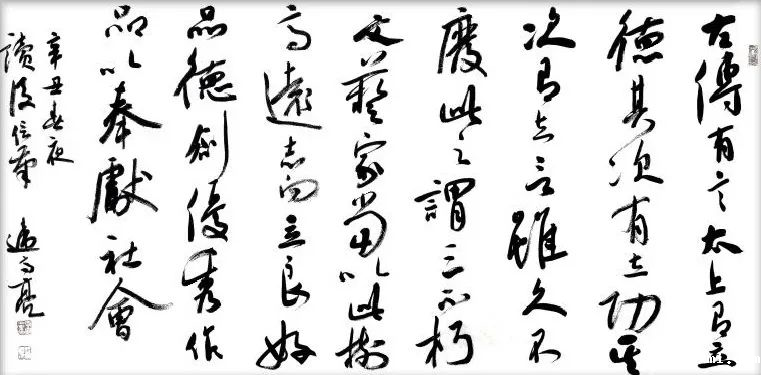 左傳有言太上有立
德其次有立功其
次有立言雖久不
廢此之謂三不朽
文藝家當以此樹
高遠志向立良好
品德創優秀作
品以奉獻社會
辛丑春夜
讀後信筆